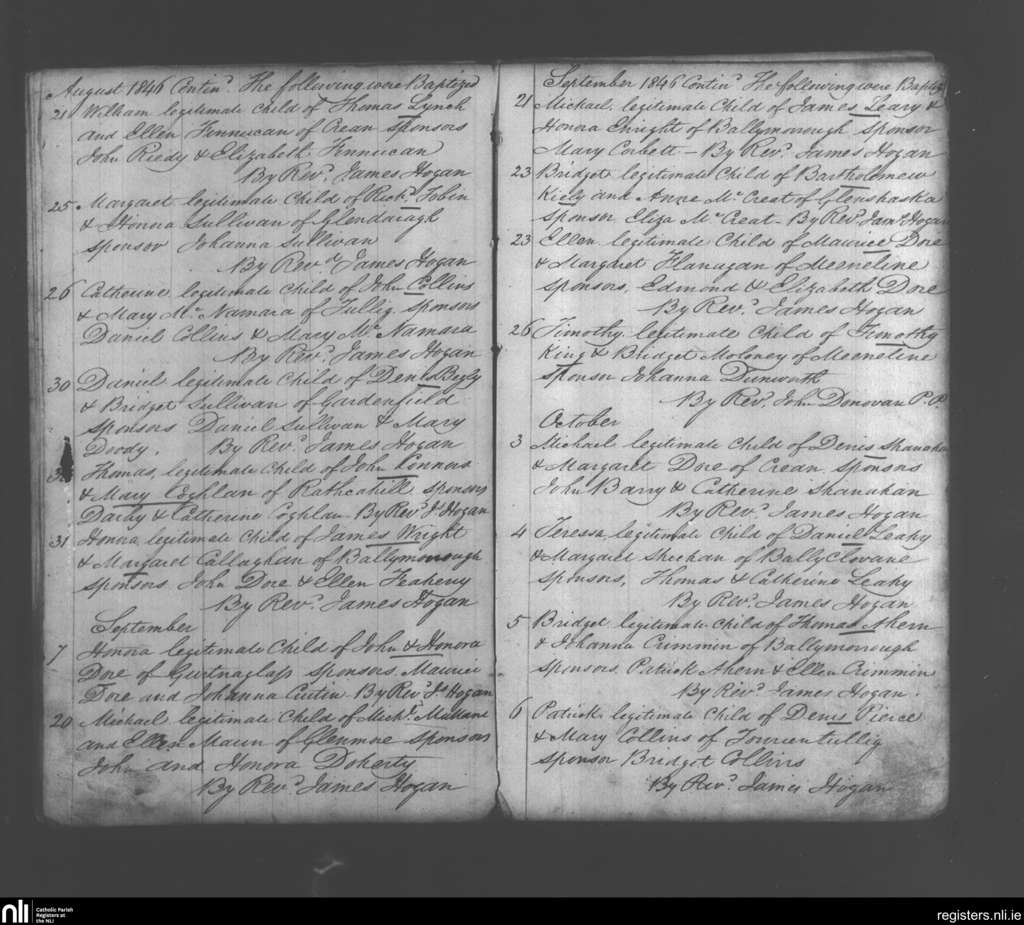 August 1846 Contin.d The following were Baptized
21 William legitimate Child of Thomas Lynch
and Ellen Finnucan of Crean Sponsors
John Riedy & Elizabeth Finnucan
By Rev.d James Hogan
25 Margaret legitimate Child of Rich.d Tobin
& Honora Sullivan of Glendaragh
Sponsor Johanna Sullivan
By Rev.d James Hogan
26 Catherine legitimate Child of John Collins
& Mary Mc Namara of Tullig Sponsors
Daniel Collins & Mary Mc Namara
By Rev.d James Hogan
30 Daniel legitimate Child of Denis Begly
& Bridget Sullivan of Gardenfield
Sponsors Daniel Sullivan & Mary
Doody. By Rev.d James Hogan
Thomas, legitimate Child of John Connors
& Mary Coghlan of Rathcahill Sponsors
Darby & Catherine Coghlan By Rev.d Js Hogan
31 Honora legitimate Child of James Wright
& Margaret Callaghan of Ballymorrough
Sponsors John Dore & Ellen Flaherty
By Rev.d James Hogan
September
7 Honora legitimate Child of John & Honora
Dore of Gurtnaglass Sponsors Maurice
Dore and Johanna Curtin By Rev.d Js Hogan
20 Michael legitimate Child of Mich.l Mullane
and Ellen Maun of Glenmne Sponsors
John and Honora Doherty
By Rev.d James Hogan
September 1846 Contin.d The following were Baptiz
21 Michael legitimate Child of James Leary &
Honora Enright of Ballymorough Sponsor
Mary Corbett - By Rev.d James Hogan
23 Bridget legitimate Child of Bartholomew
Kiely and Anne Mc Creat of Glenshaska
Sponsor Eliza Mc Creat - By Rev.d Jam.s Hogan
23 Ellen legitimate Child of Maurice Dore
& Margaret Flanagan of Meeneline
Sponsors, Edmond & Elizabeth Dore
By Rev.d James Hogan
26 Timothy legitimate Child of Timothy
King & Bridget Moloney of Meeneline
Sponsor Johanna Dunworth
By Rev.d John Donovan P.P.
October
3 Michael legitimate Child of Denis Shanahan
& Margaret Dore of Crean Sponsors
John Barry & Catherine Shanahan
By Rev.d James Hogan
4 Teressa legitimate Child of Daniel Leahy
& Margaret Sheehan of Ballyclovane
Sponsors, Thomas & Catherine Leahy
By Rev.d James Hogan
5 Bridget legitimate Child of Thomas Ahern
& Johanna Crimmin of Ballymorrough
Sponsors Patrick Ahern & Ellen Crimmin
By Rev.d James Hogan.
6 Patrick legitimate Child of Denis Pierce
& Mary Collins of Tournentullig
Sponsor Bridget Collins
By Rev.d James Hogan
nli
Catholic Parish
Registers at
the NLI
registers.nli.ie